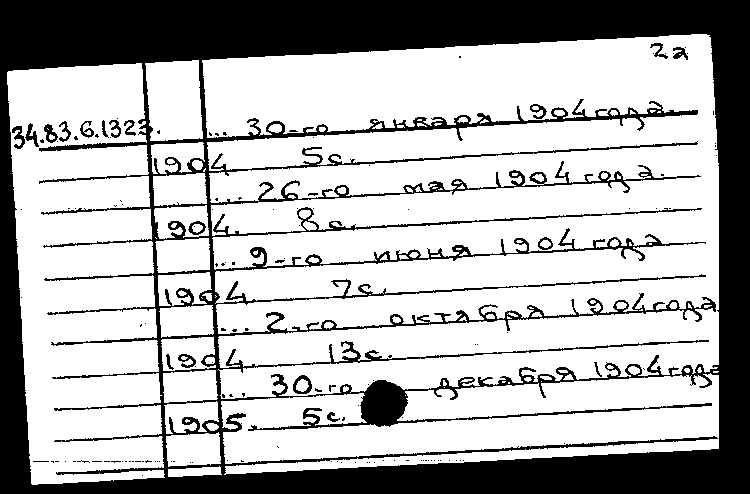 2а
34.83.6.1323. ... 30-го января 1904 года.
1904 5с.
... 26-го мая 1904 года.
1904. 8с.
... 9-го июня 1904 года
1904. 7с.
... 2-го октября 1904 года
1904. 13с.
... 30-го декабря 1904 года
1905. 5с.